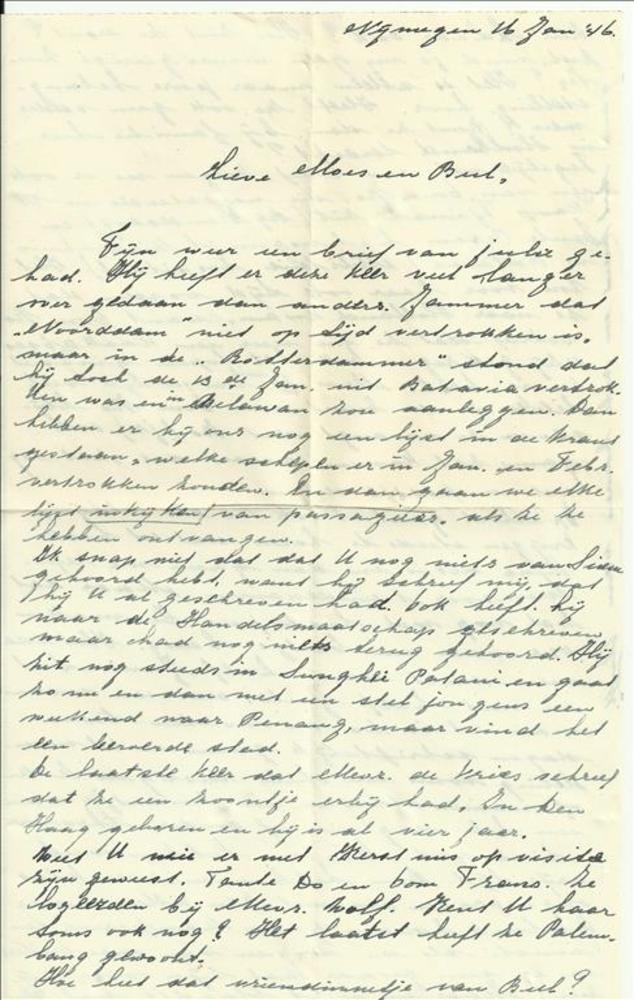 Nijmegen 16 Jan '46.
Lieve Moes en Bul,
Fijn weer een brief van jullie ge-
had. Hij heeft er deze keer veel langer
over gedaan dan anders. Jammer dat
„Noorddam" niet op tijd vertrokken is,
maar in de „Rotterdammer" stond dat
hij toch de 13de Jan. uit Batavia vertrok-
ken was en in Belawan zou aanleggen. Dan
hebben er bij ons nog een lijst in de krant
gestaan, welke schepen er in Jan. en Febr.
vertrekken zouden. En dan gaan we elke
lijst inkijken! van passagiers, als ze ze
hebben ontvangen.
Ik snap niet dat dat U nog niets van
gehoord hebt, want hij schreef mij, dat
hij U al geschreven had. Ook heeft hij
naar de Handelsmaatschap geschreven
maar had nog niets terug gehoord. Hij
zit nog steeds in Sunghei Patani en gaat
zo nu en dan met een stel jongens een
weekend naar Penang, maar vind het
een beroerde stad.
De laatste keer dat Mevr. de Kries schreef
dat ze een zoontje erbij had. In Den
Haag geboren en hij is al vier jaar.
Weet U wie er met Kerstmis op visite
zijn geweest. Tante Do en Oom Frans. Ze
logeerden bij Mevr. Wolf. Kent U haar
soms ook nog? Het laatst heeft ze Palem-
bang gewoont.
Hoe heet dat vriendinnetje van Bul?